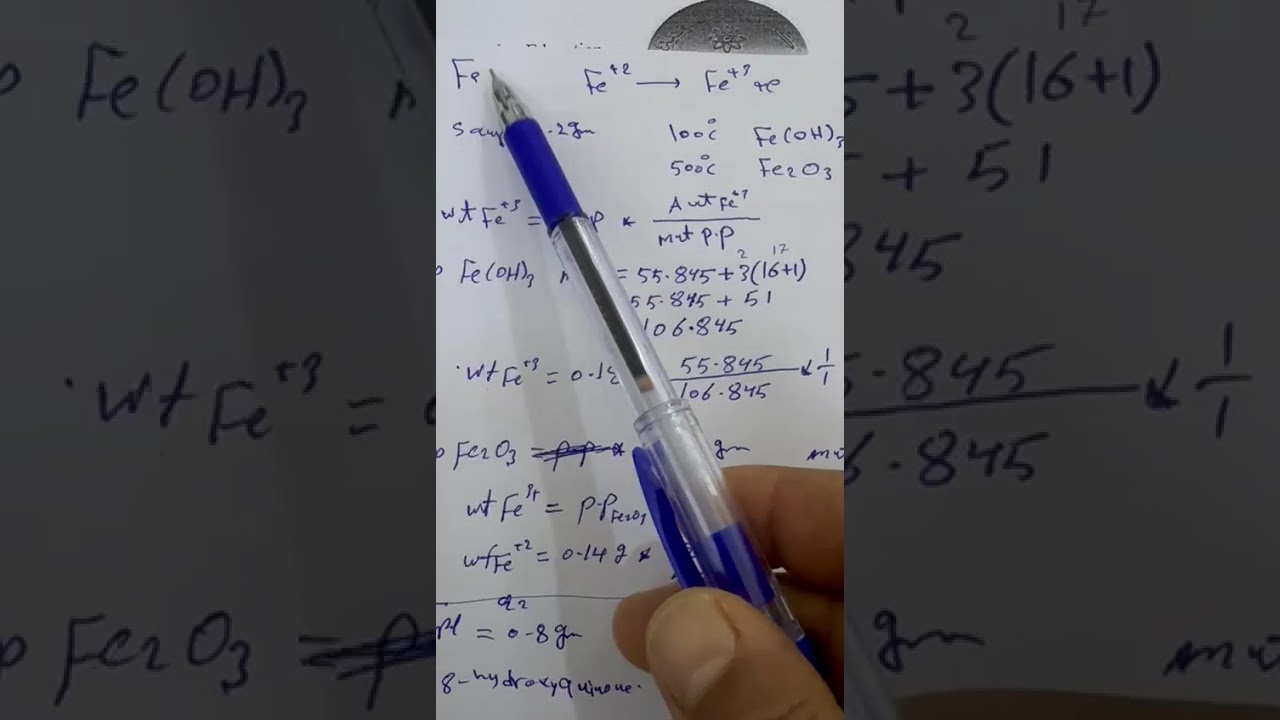 Fe Fe+2 → Fe+3 +e
2gm 100°C Fe(OH)3
500°C Fe2O3
wt Fe+3 = P * A wt Fe+3 / M wt P.P
2 17
Fe(OH)3 = 55.845+3(16+1)
55.845 + 51
106.845
wt Fe+3 = 0.1 55.845 / 106.845 * 1/1
Fe2O3 = gm
wt Fe3+ = P.P Fe2O3
wt Fe+2 = 0.14 g *
q2
= 0.8 gm
8-hydroxyquinone.